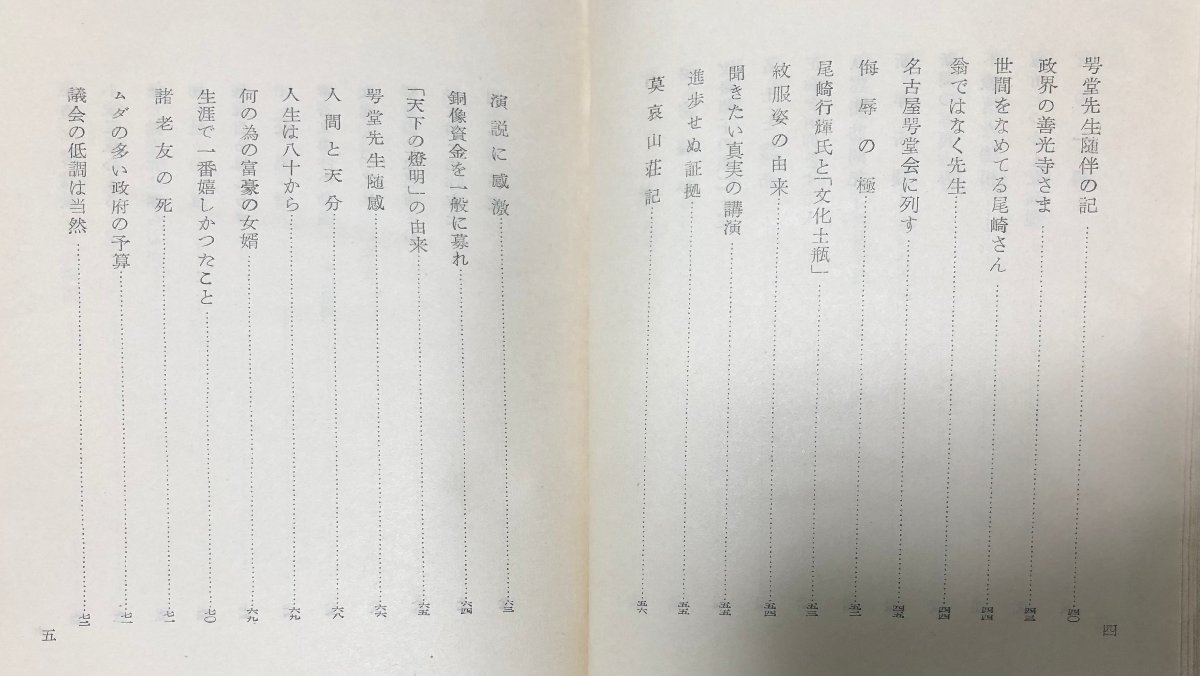 咢堂先生随伴の記……四〇
政界の善光寺さま……四三
世間をなめてる尾崎さん……四四
翁ではなく先生……四四
名古屋咢堂会に列す……四五
侮辱の極……五二
尾崎行輝氏と「文化土瓶」……五三
紋服姿の由来……五四
聞きたい真実の講演……五五
進歩せぬ証拠……五五
莫哀山荘記……五六
四
演説に感激……六三
銅像資金を一般に募れ……六四
「天下の燈明」の由来……六五
咢堂先生随感……六六
人間と天分……六八
人生は八十から……六九
何の為の富豪の女婿……六九
生涯で一番嬉しかつたこと……七〇
諸老友の死……七一
ムダの多い政府の予算……七一
議会の低調は当然……七二
五